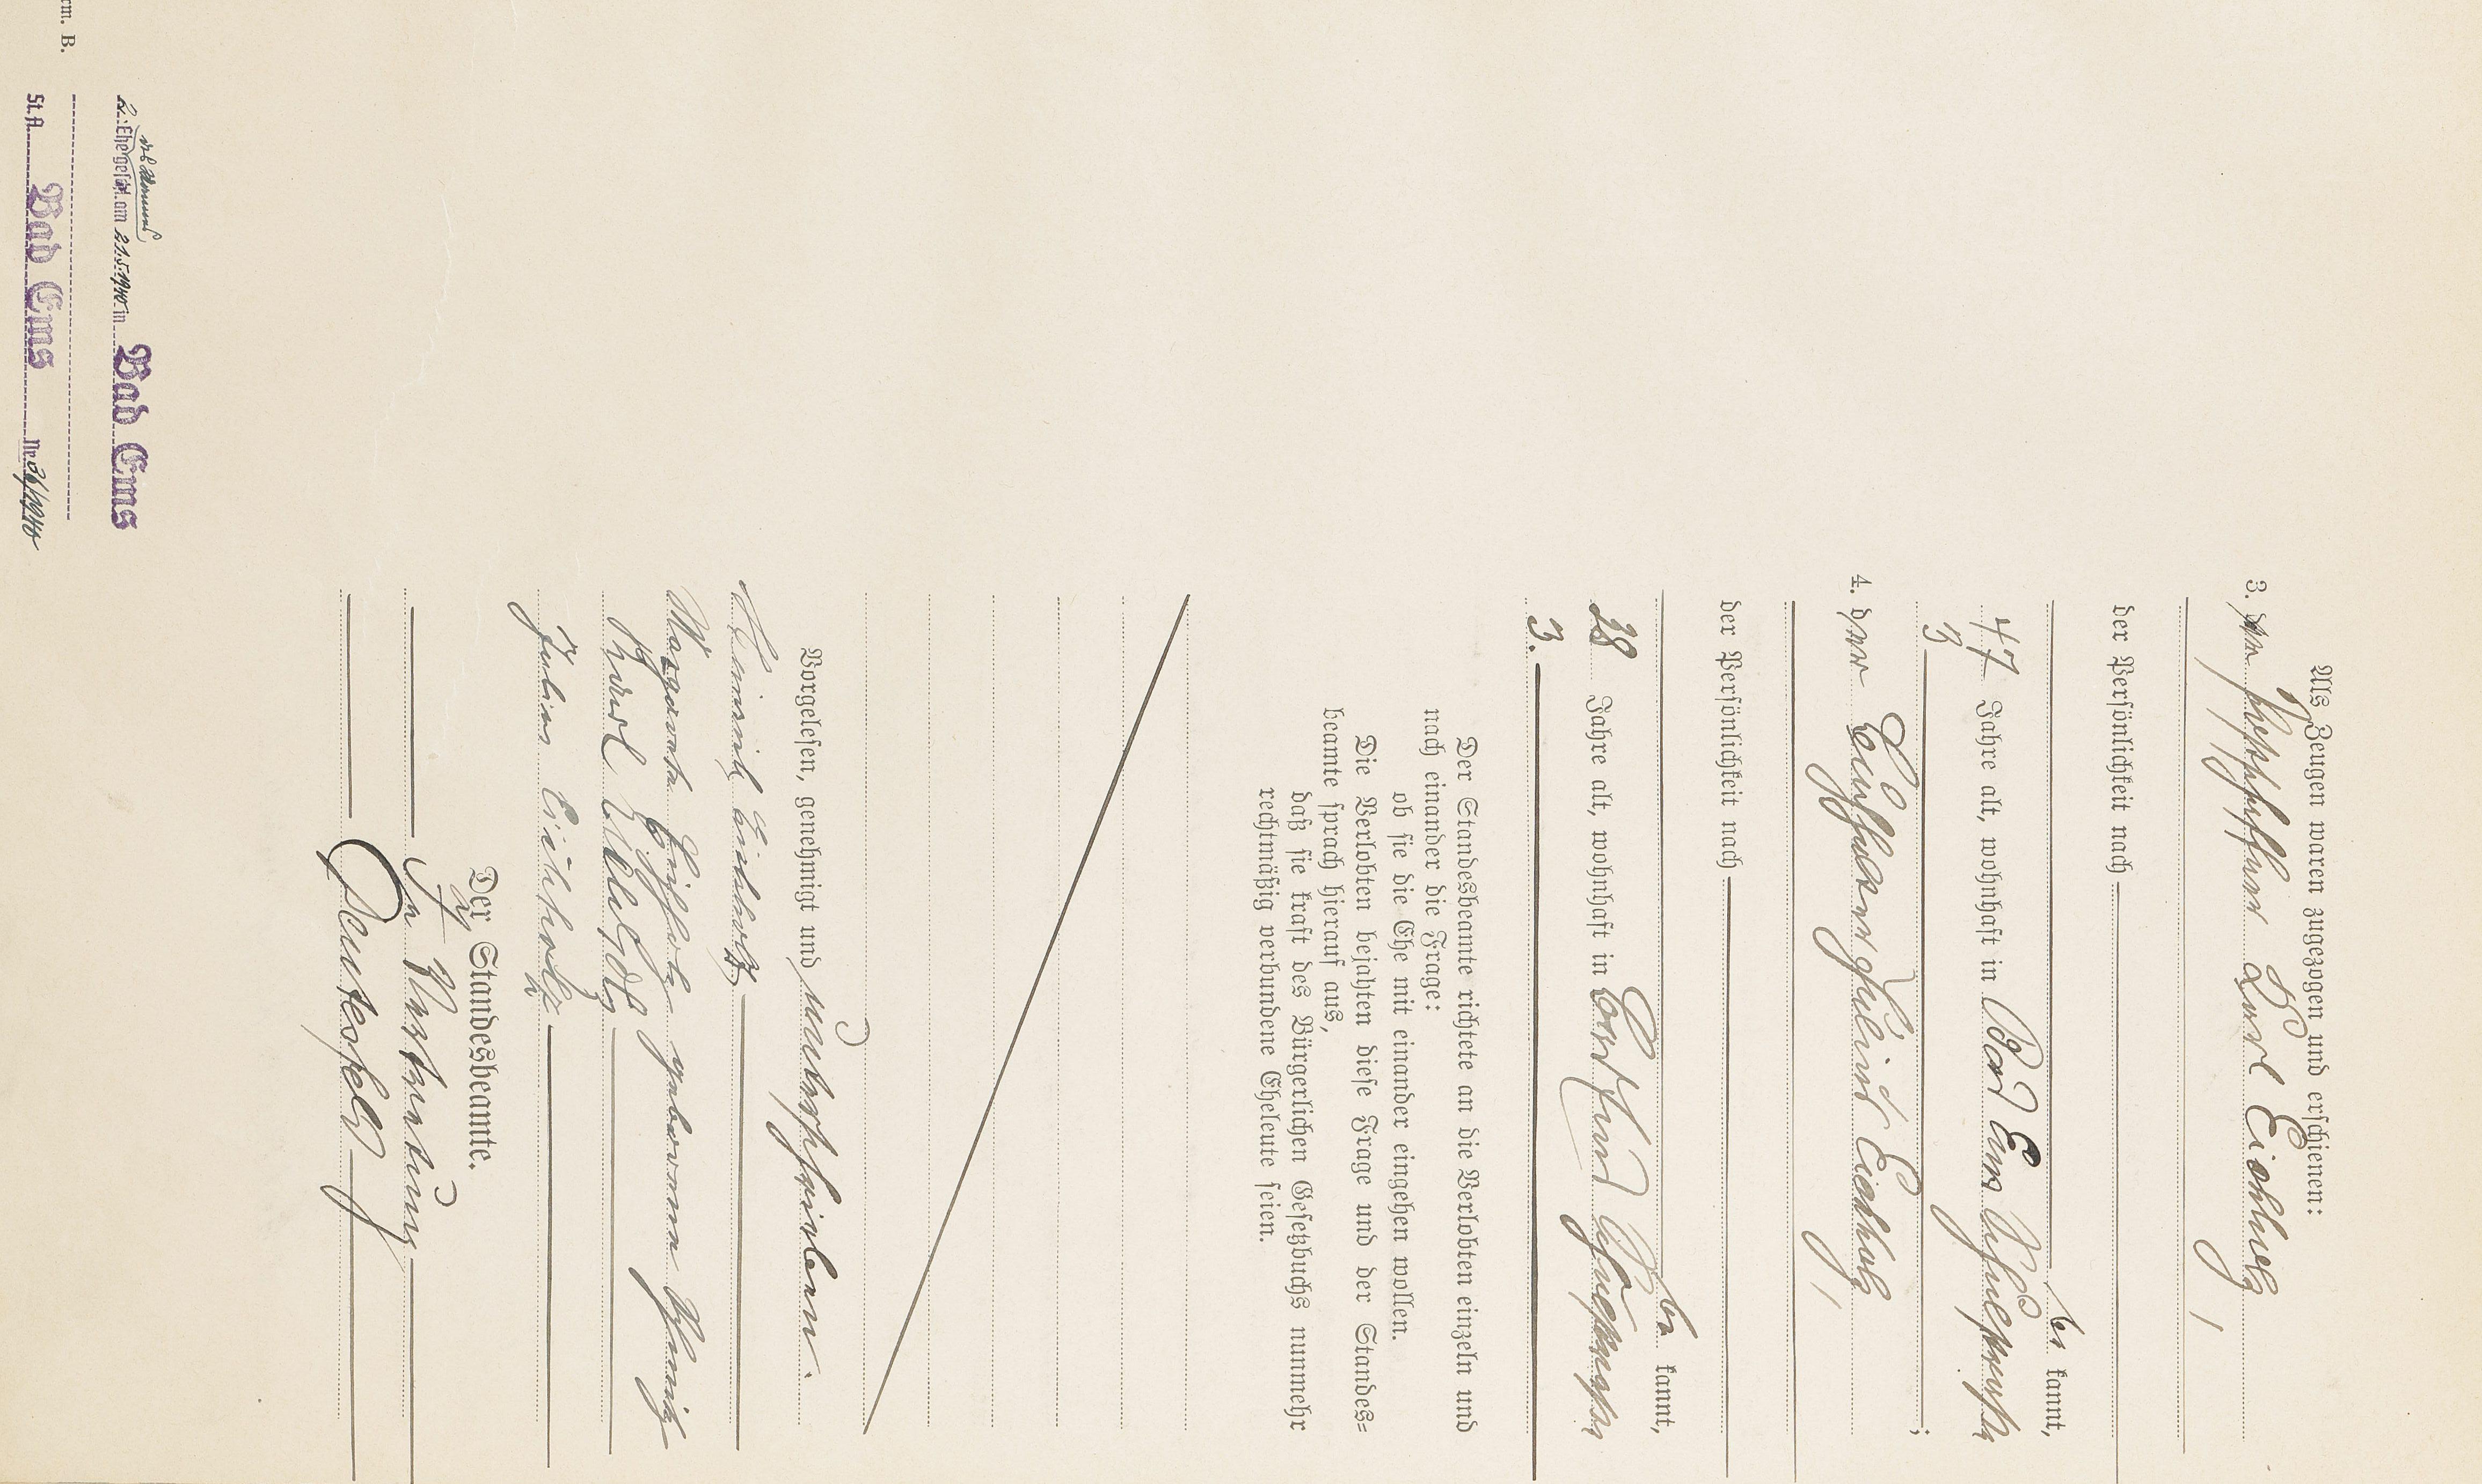 Als Zeugen waren zugezogen und erschienen:
3. der Karl Eichholz,
der Persönlichkeit nach
be kannt,
47 Jahre alt, wohnhaft in Bad Ems
3
4. der Julius Eichholz,
;
der Persönlichkeit nach
be kannt,
38 Jahre alt, wohnhaft in
3.
Der Standesbeamte richtete an die Verlobten einzeln und
nach einander die Frage:
ob sie die Ehe mit einander eingehen wollen.
Die Verlobten bejahten diese Frage und der Standes-
beamte sprach hierauf aus,
daß sie kraft des Bürgerlichen Gesetzbuchs nunmehr
rechtmäßig verbundene Eheleute seien.
Vorgelesen, genehmigt und unterschrieben.
Heinrich Eichholz
Margareta Eichholz geborene
Karl Eichholz
Julius Eichholz
Der Standesbeamte.
In Vertretung
des Mannes
2. Ehe geschl. am 21.5.1940 in Bad Ems
St. A. Bad Ems Nr. 36/1940
m. B.